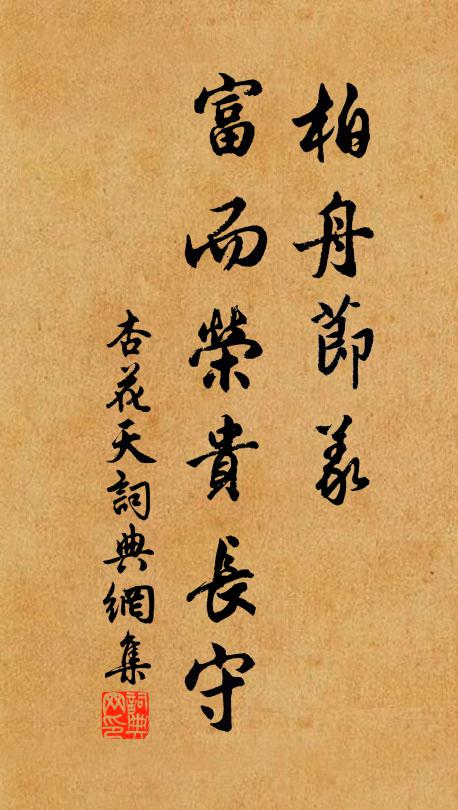 柏舟節義
富而榮貴長守
杏花天詞典網集
詞典网印